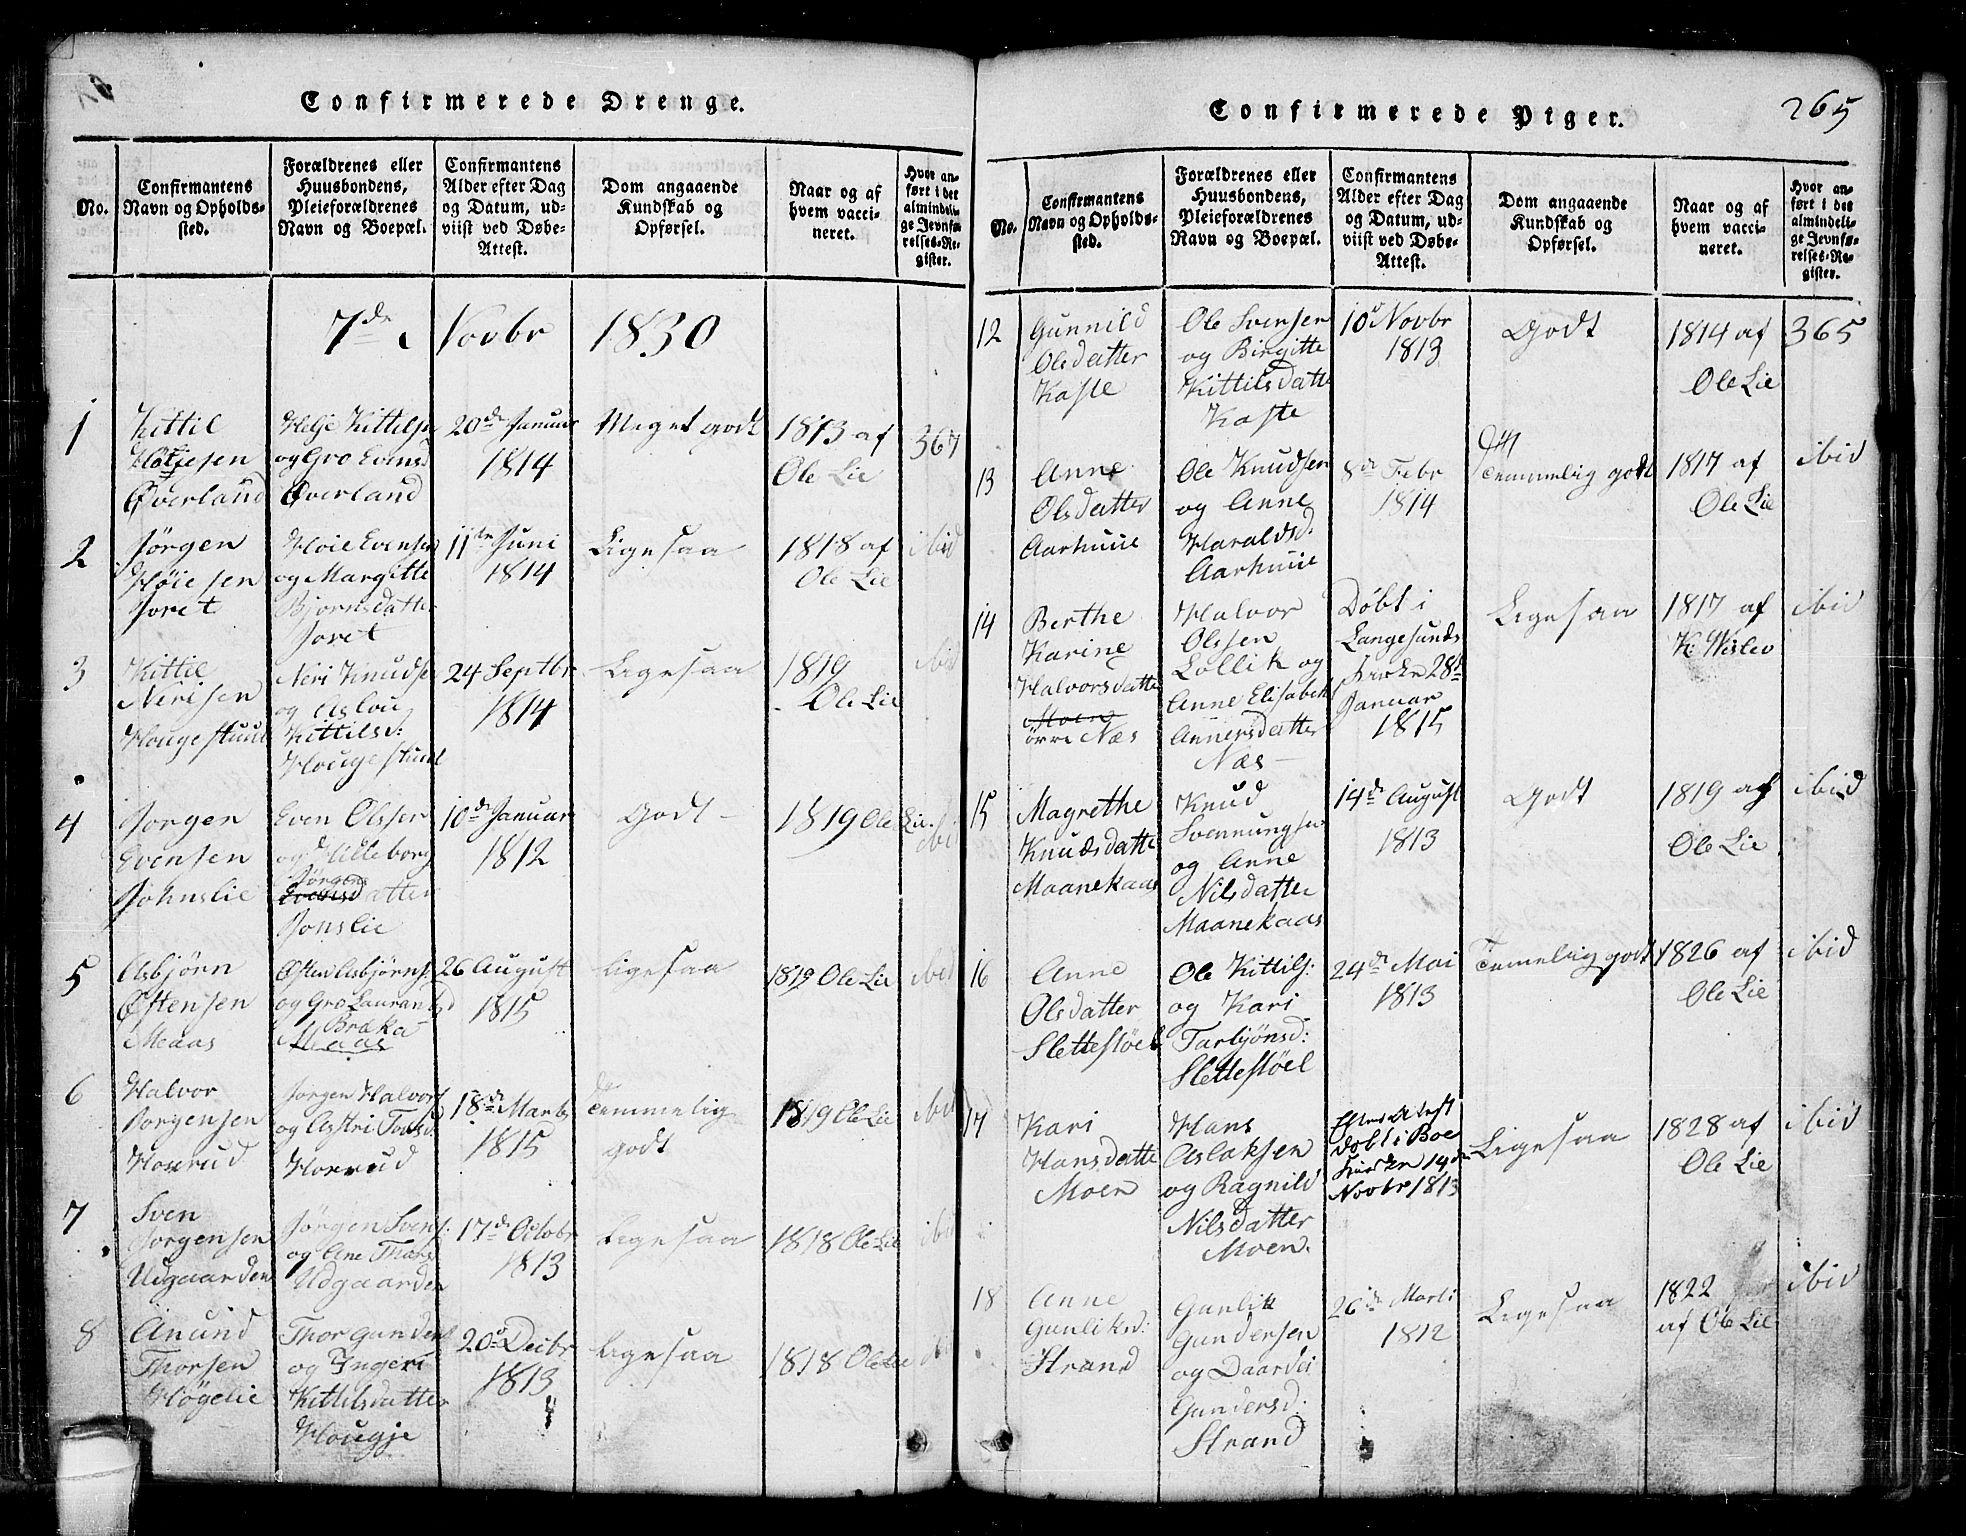 Confirmerede Drenge.
No.
Confirmantens
Navn og Opholds-
sted.
Forældrenes eller
Huusbondens,
Pleieforældrenes
Navn og Boepæl.
Confirmantens
Alder efter Dag
og Datum, ud-
viist ved Døbe-
Attest.
Dom angaaende
Kundskab og
Opførsel.
Naar og af
hvem vacci-
neret.
Hvor an-
ført i det
almindeli-
ge Jevnfø-
relses-Re-
gister.
7de Novbr 1830
1
Kittil
Høljesen
Øverland
Helje Kittilsen
og Gro Evensd
Øverland
20de Januar
1814
Meget godt
1813 af
Ole Lie
367
2
Jørgen
Høiesen
Joret
Hoie Evensen
og Margitte
Bjornsdatter
Joret
11te Juni
1814
Ligesaa
1818 af
Ole Lie
ibid
3
Kittil
Nerisen
Hougestuul
Neri Knudse
og Aslou
Kittilsd:
Hougestuul
24 Septbr
1814
Ligesaa
1819
Ole Lie
ibid
4
Jorgen
Evensen
Johnslie
Even Olssen
og Hilleborg
Jørgens
Evensdatter
Jonslie
10de Januar
1812
Godt
1819 Ole Lie.
ibid
5
Asbjørn
Østensen
Meaas
Østen Asbjørns:
og Gro Laurantsd
Bråka
Meaas
26 August
1815
Ligesaa
1819 Ole Lie
ibid
6
Halvor
Jorgensen
Horrud
Jorgen Halvors
og Astri Tordsd:
Horrud
18de Marts
1815
Temmelig
godt
1819 Ole Lie
ibid
7
Sven
Jorgensen
Udgaarden
Jørgen Svens:
og Ane Thors
Udgaarden
17de Octobr
1813
Ligesaa
1818 Ole Lie
ibid
8
Anund
Thorsen
Høgelie
Thor Gunders
og Ingeri
Kittilsdatter
Hougje
20de Decbr
1813
Ligesaa
1818 Ole Lie
ibid
Confirmerede Piger.
265
No.
Confirmantens
Navn og Opholds-
sted.
Forældrenes eller
Huusbondens,
Pleieforældrenes
Navn og Boepæl.
Confirmantens
Alder efter Dag
og Datum, ud-
viist ved Døbe-
Attest.
Dom angaaende
Kundskab og
Opførsel.
Naar og af
hvem vacci-
neret.
Hvor an-
ført i det
almindeli-
ge Jevnfø-
relses-Re-
gister.
12
Gunnild
Olsdatter
Kaste
Ole Svensen
og Birgitte
Kittilsdatte
Kaste
10d Novbr
1813
Godt
1814 af
Ole Lie
365
13
Anne
Olsdatter
Aarhuue
Ole Knudsen
og Anne
Haraldsd.
Aarhuue
8de Febr
1814
Temmelig godt
1817 af
Ole Lie
ibid
14
Berthe
Karine
Halvorsdatte
Moen
Næs
Halvor
Olssen
Lollik og
Anne Elisabeth
Annersdatter
Næs
Døbt i
Langesunds
Kirke 28de
Januar
1815
Ligesaa
1817 af
K. Wislev
ibid
15
Magrethe
Knudsdatte
Maanekaas
Knud
Svennungsen
og Anne
Nilsdatter
Maanekaas
14de August
1813
Godt
1819 af
Ole Lie
ibid
16
Anne
Olsdatter
Slettestøel
Ole Kittils:
og Kari
Tarbjønsd:
Slettestøel
24de Mai
1813
Temelig godt
1826 af
Ole Lie
ibid
17
Kari
Hansdatte
Moen
Hans
Aslaksen
og Ragnild
Nilsdatter
Moen.
Efter Attest
døbt i Boe
Kirke 14de
Novbr 1813
Ligesaa
1828 af
Ole Lie
ibid
18
Anne
Gunliksd:
Strand
Gunlik
Gundersen
og Daardei
Gundersd:
Strand
26de Marti
1812
Ligesaa
1822
af Ole Lie
ibid